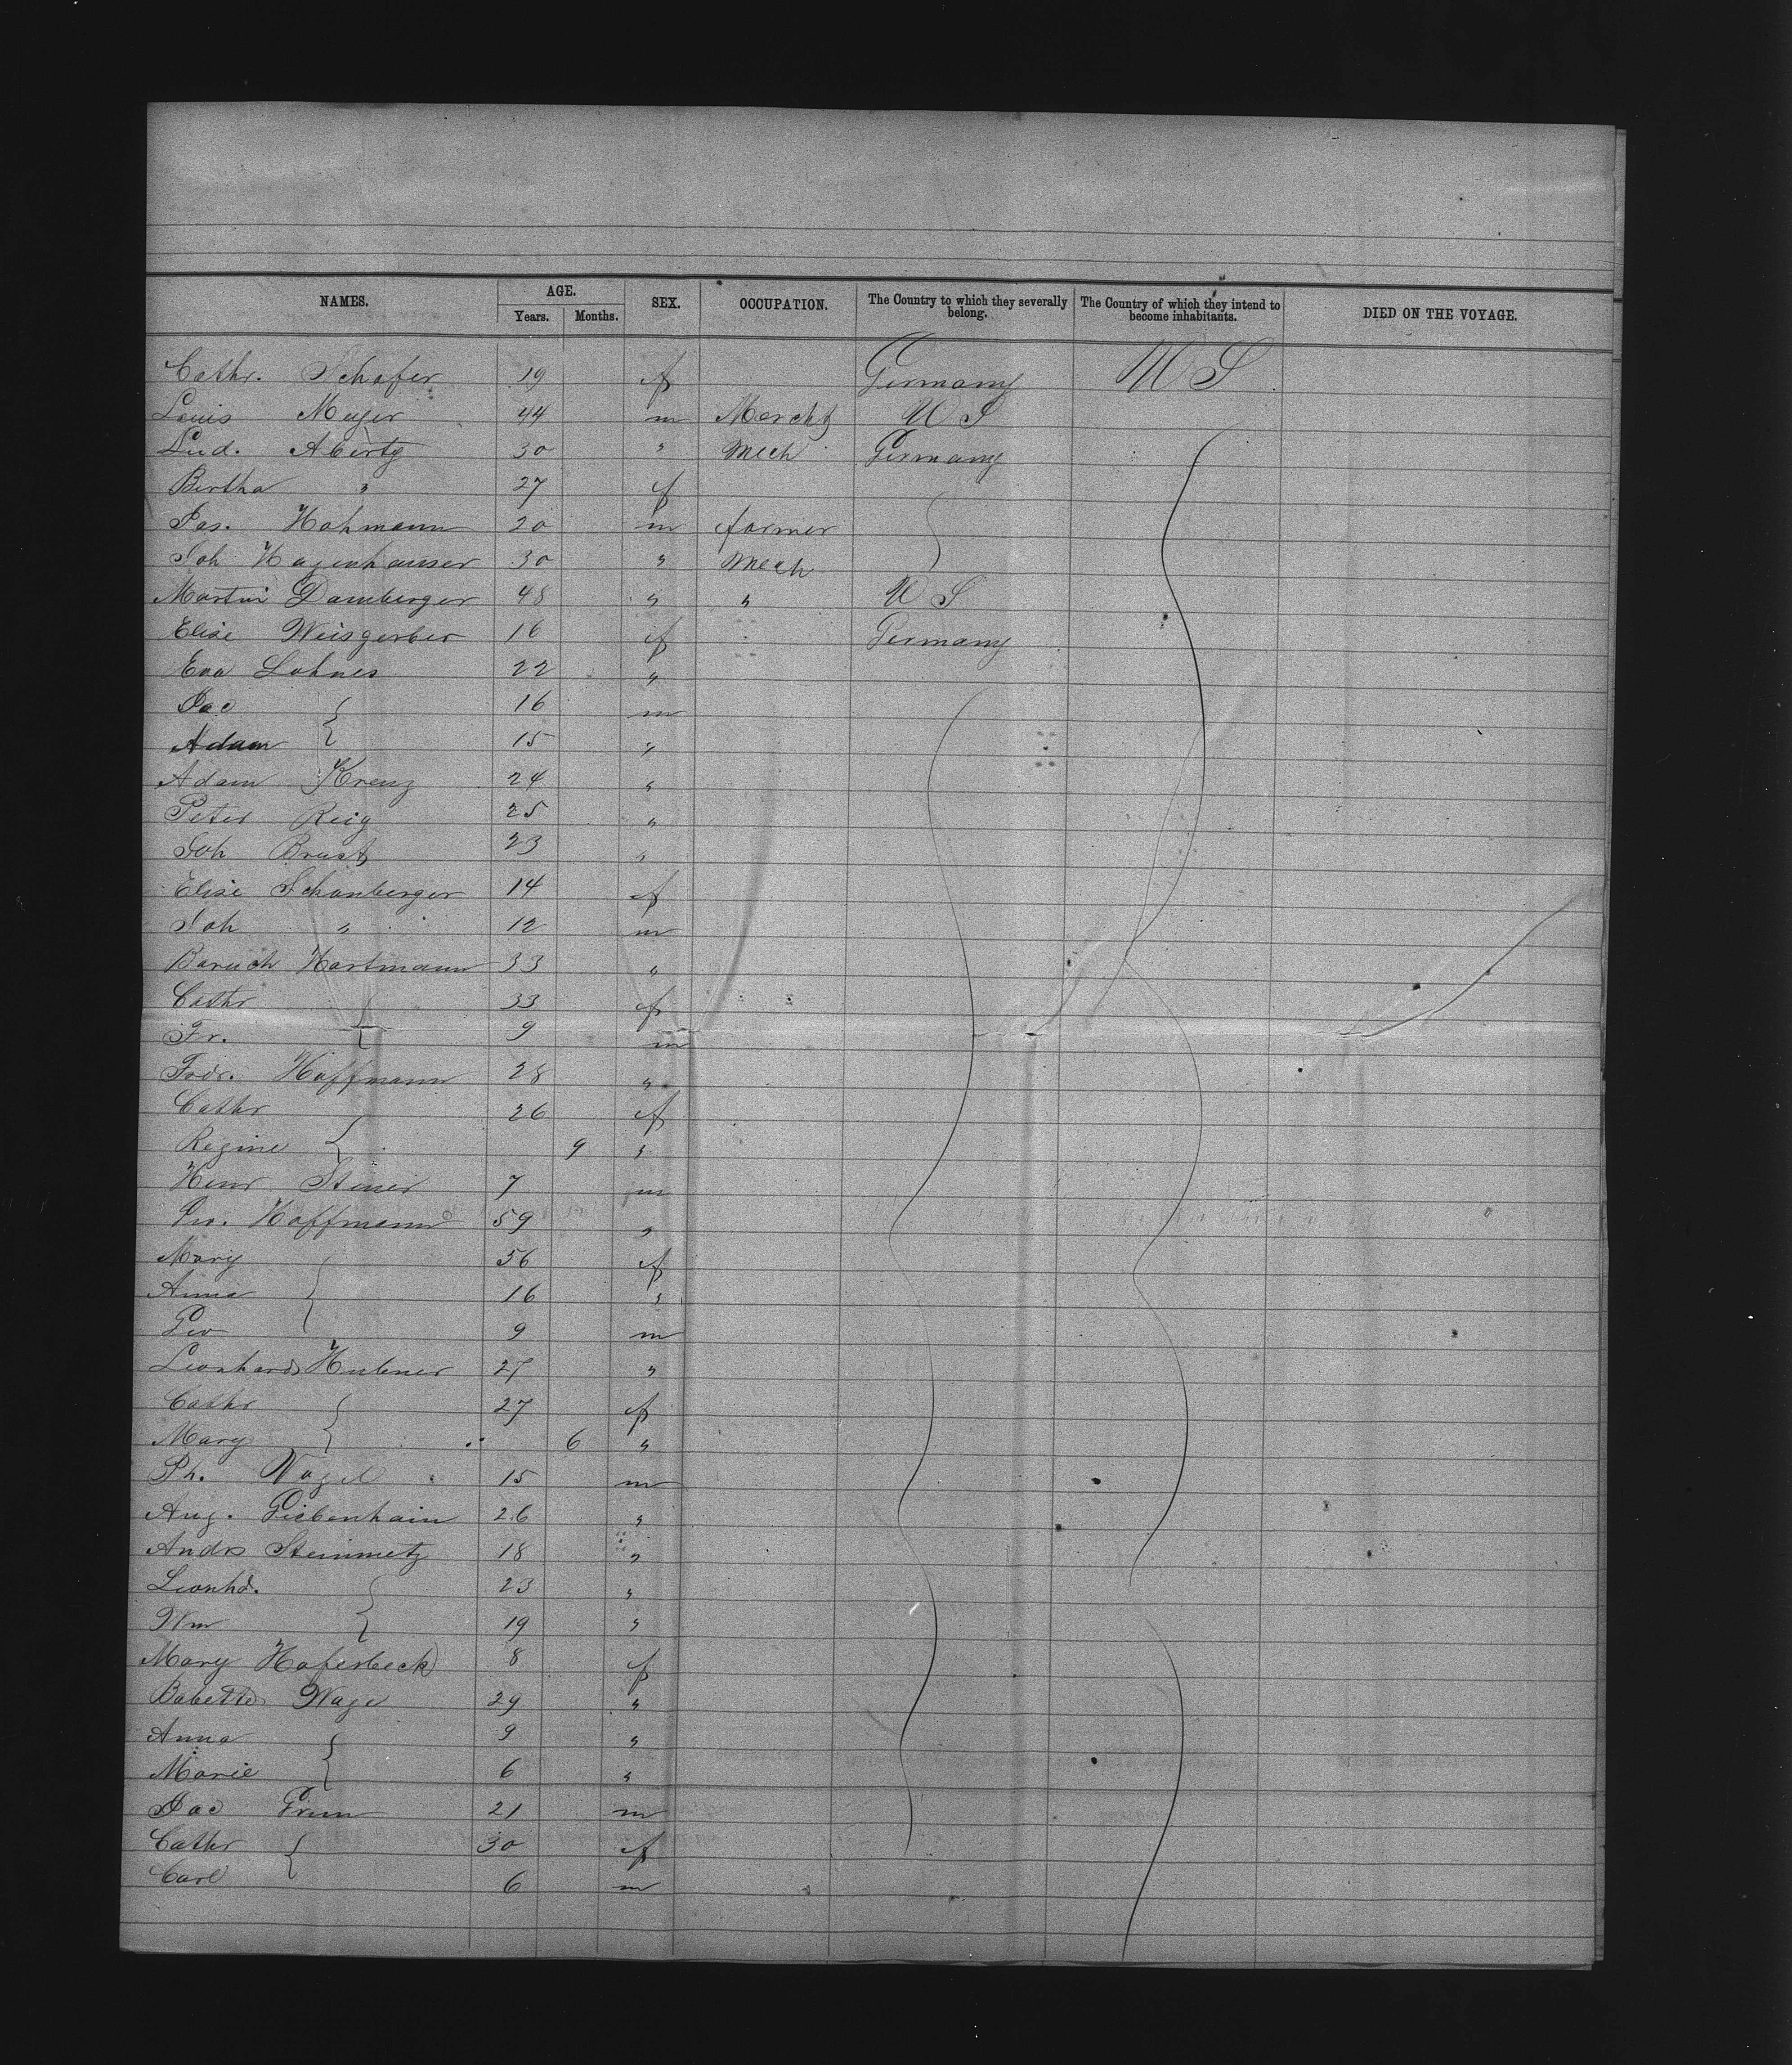 NAMES. AGE. SEX. OCCUPATION. The Country to which they severally belong. The Country of which they intend to become inhabitants. DIED ON THE VOYAGE.
Years. Months.
Cathr. Schafer 19 f Germany U S
Louis Meyer 44 m Morcht U S
Lud. Abertz 30 " Mech Germany
Bertha " 27 f
Jas. Hohmann 20 m farmer
Joh Hagenhauser 30 " Mech
Martin Damberger 48 " " U S
Elise Weisgerber 16 f Germany
Eva Lohnes 22 "
Jac { 16 m
Adam { 15 "
Adam Kreuz 24 "
Peter Reig 25 "
Joh Brust 23 "
Elise Schanberger 14 f
Joh " 12 m
Baruch Hartmann 33 "
Cathr { 33 f
Fr. { 9 m
Fedr. Hoffmann 28 "
Cathr { 26 f
Regine { 9 "
Henr Steiner 7 m
Geo. Hoffmann 59 "
Mary { 56 f
Anna { 16 "
Geo { 9 m
Leonhard Hubner 27 "
Cathr { 27 f
Mary { 6 "
Ph. Nagel 15 m
Aug. Giebenhain 26 "
Andrs Steinmetz 18 "
Leonhd. { 23 "
Wm { 19 "
Mary Hafesbeck 8 f
Babette Wage 29 "
Anna { 9 "
Marie { 6 "
Jac Grun 21 m
Cathr { 30 f
Carl { 6 m